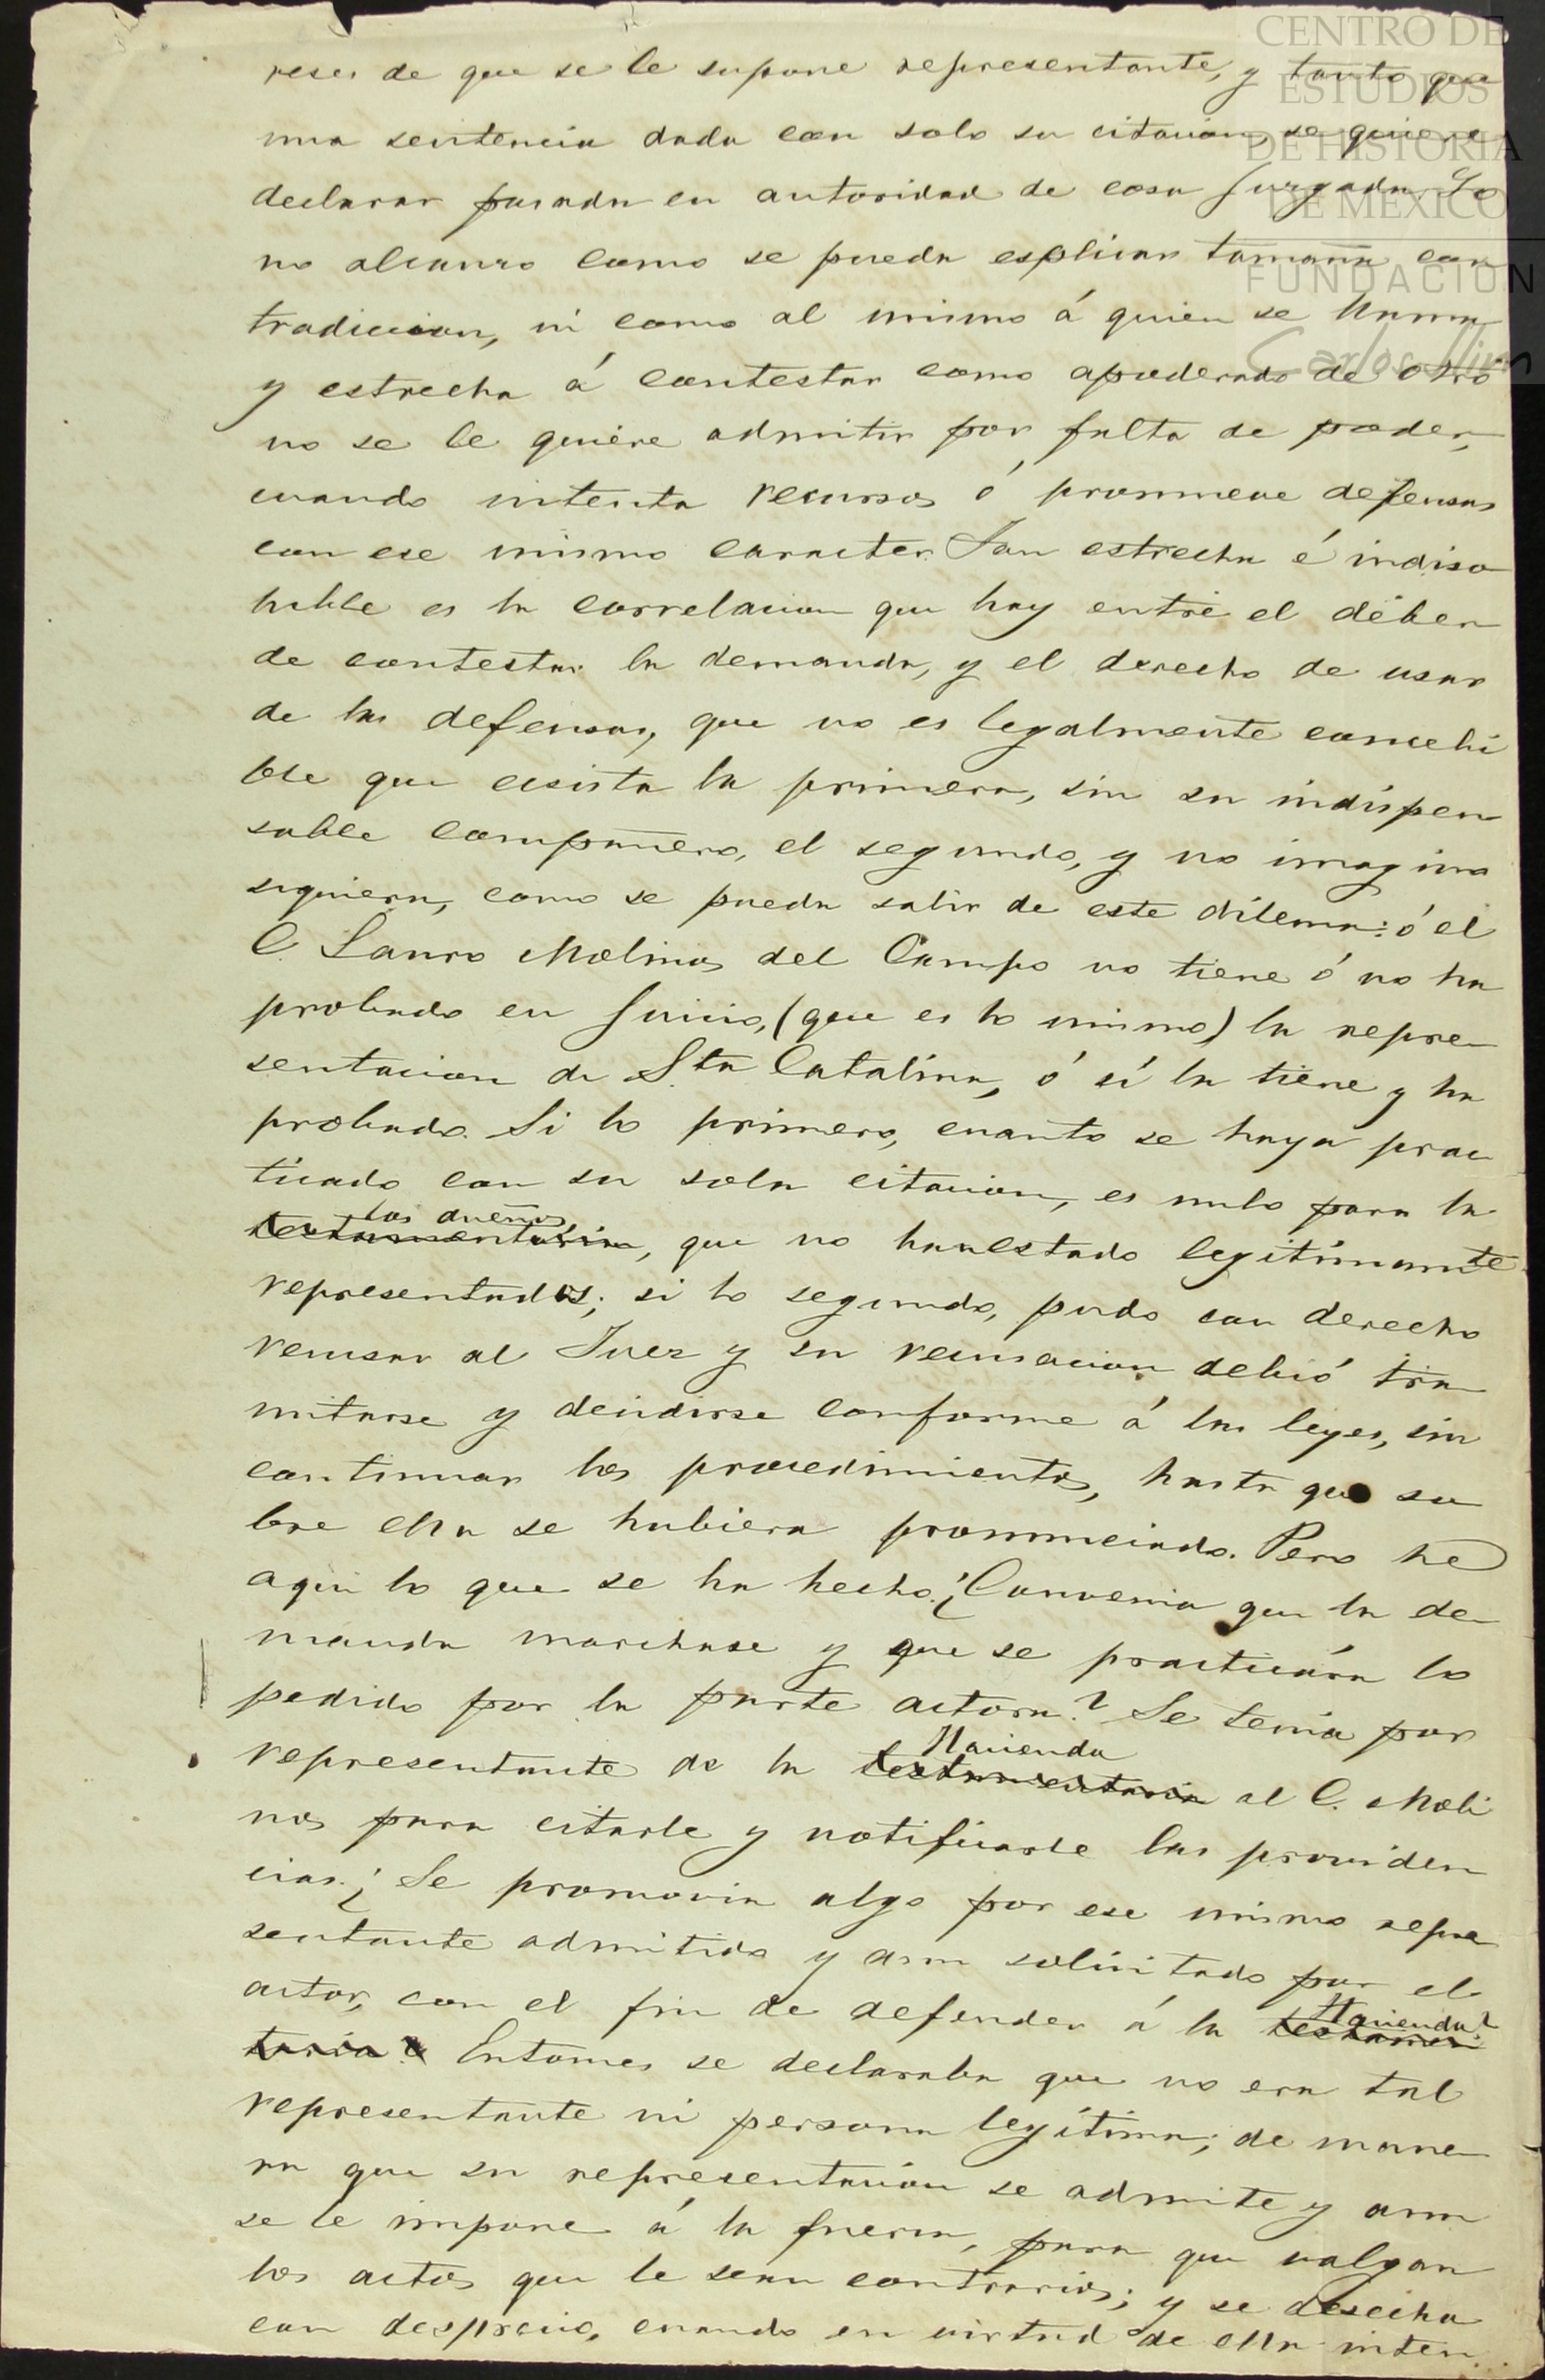 reses de que se le supone representante, y tanto que
una sentencia dada con solo su citacion, se quiere
declarar pasada en autoridad de cosa juzgada. Yo
no alcanzo como se pueda esplicar tamaña con
tradiccion, ni como al mismo á quien se llama
y estrecha á contestar como apoderado de otro
no se le quiere admitir por falta de poder,
cuando intenta recursos ó promueve defensas
con ese mismo caracter. Tan estrecha é indiso
luble es la correlacion que hay entre el deber
de contestar la demanda, y el derecho de usar
de las defensas, que no es legalmente concebi
ble que ecsista la primera, sin su indispen
sable compañero, el segundo, y no imagino
siquiera, como se pueda salir de este dilema: ó el
C. Lauro Molinos del Campo no tiene ó no ha
probado en juicio, (que es lo mismo) la repre
sentacion de Sta Catalina, ó sí la tiene y ha
probado. Si lo primero, cuanto se haya prac
ticado con su sola citacion, es nulo para la
los dueños
testamentaria, que no han estado legitimamte
representados; si lo segundo, pudo con derecho
recusar al Juez y su recusacion debió tra
mitarse y decidirse conforme á las leyes, sin
continuar los procedimientos, hasta que so
bre ella se hubiera pronunciado. Pero he
aqui lo que se ha hecho. ¿Convenia que la de
manda marchase y que se practicára lo
pedido por la parte actora? Se tenía por
Hacienda
representante de la testamentaria al C. Moli
nos para citarle y notificarle las providen
cias. ¿Se promovia algo por ese mismo repre
sentante admitido y aun solicitado por el
actor, con el fin de defender á la testamen
Hacienda?
taria? Entonces se declaraba que no era tal
representante ni persona legítima; de mane
ra que su representación se admite y aun
se le impone á la fuerza, para que valgan
los actos que le sean contrarios; y se desecha
con desprecio, cuando en virtud de ella inten
CENTRO DE
ESTUDIOS
DE HISTORIA
DE MEXICO
FUNDACION
Carlos Slim